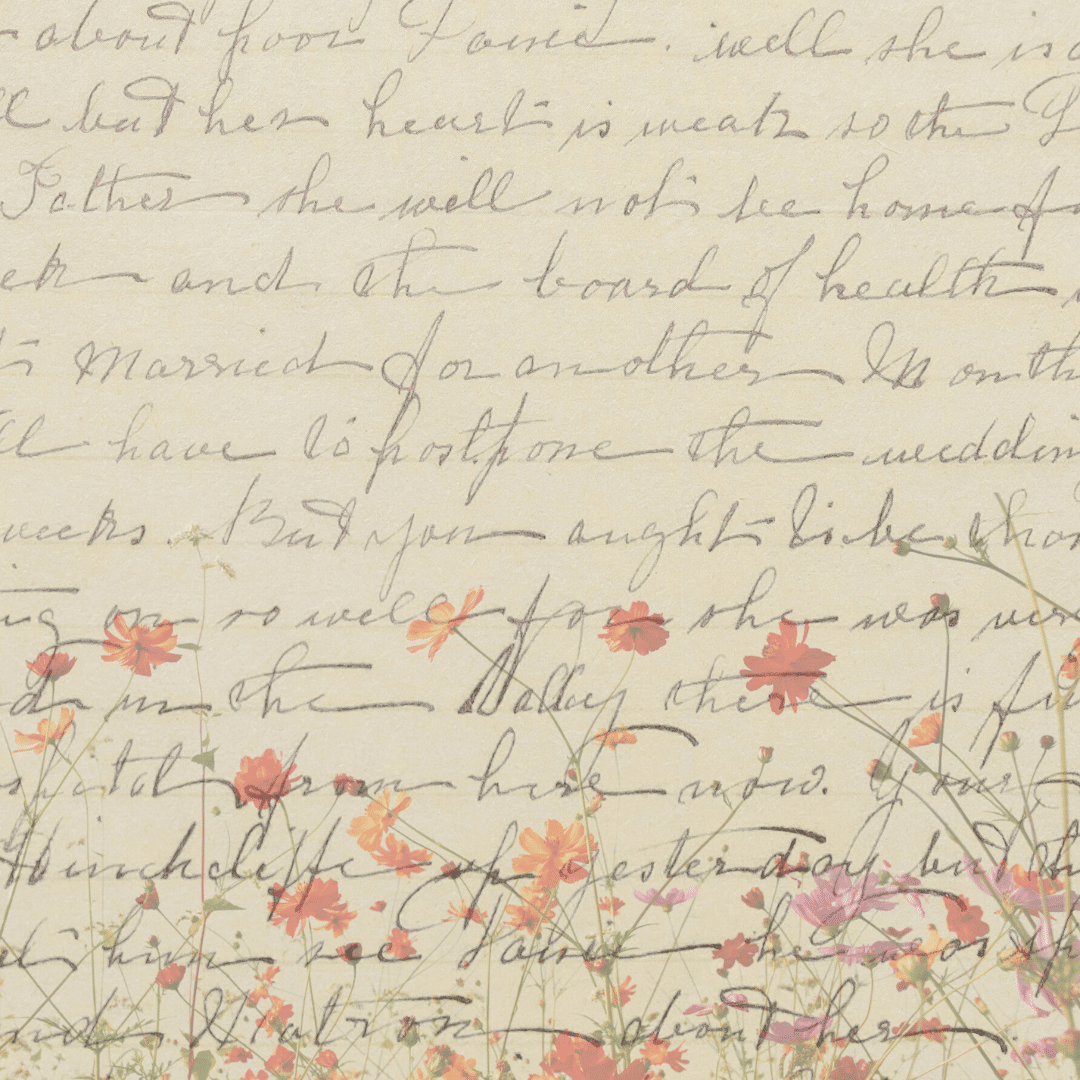 about poor Louie. well she is
but her heart is weak so the
Father she will not be home
and the board of health
Married for another Month
have to postpone the
weeks. But you aught to be
on so well for she was
in the Valley there is
from here now. Your
Hinchcliffe up yesterday but
him see Louie he was
and Matron about her